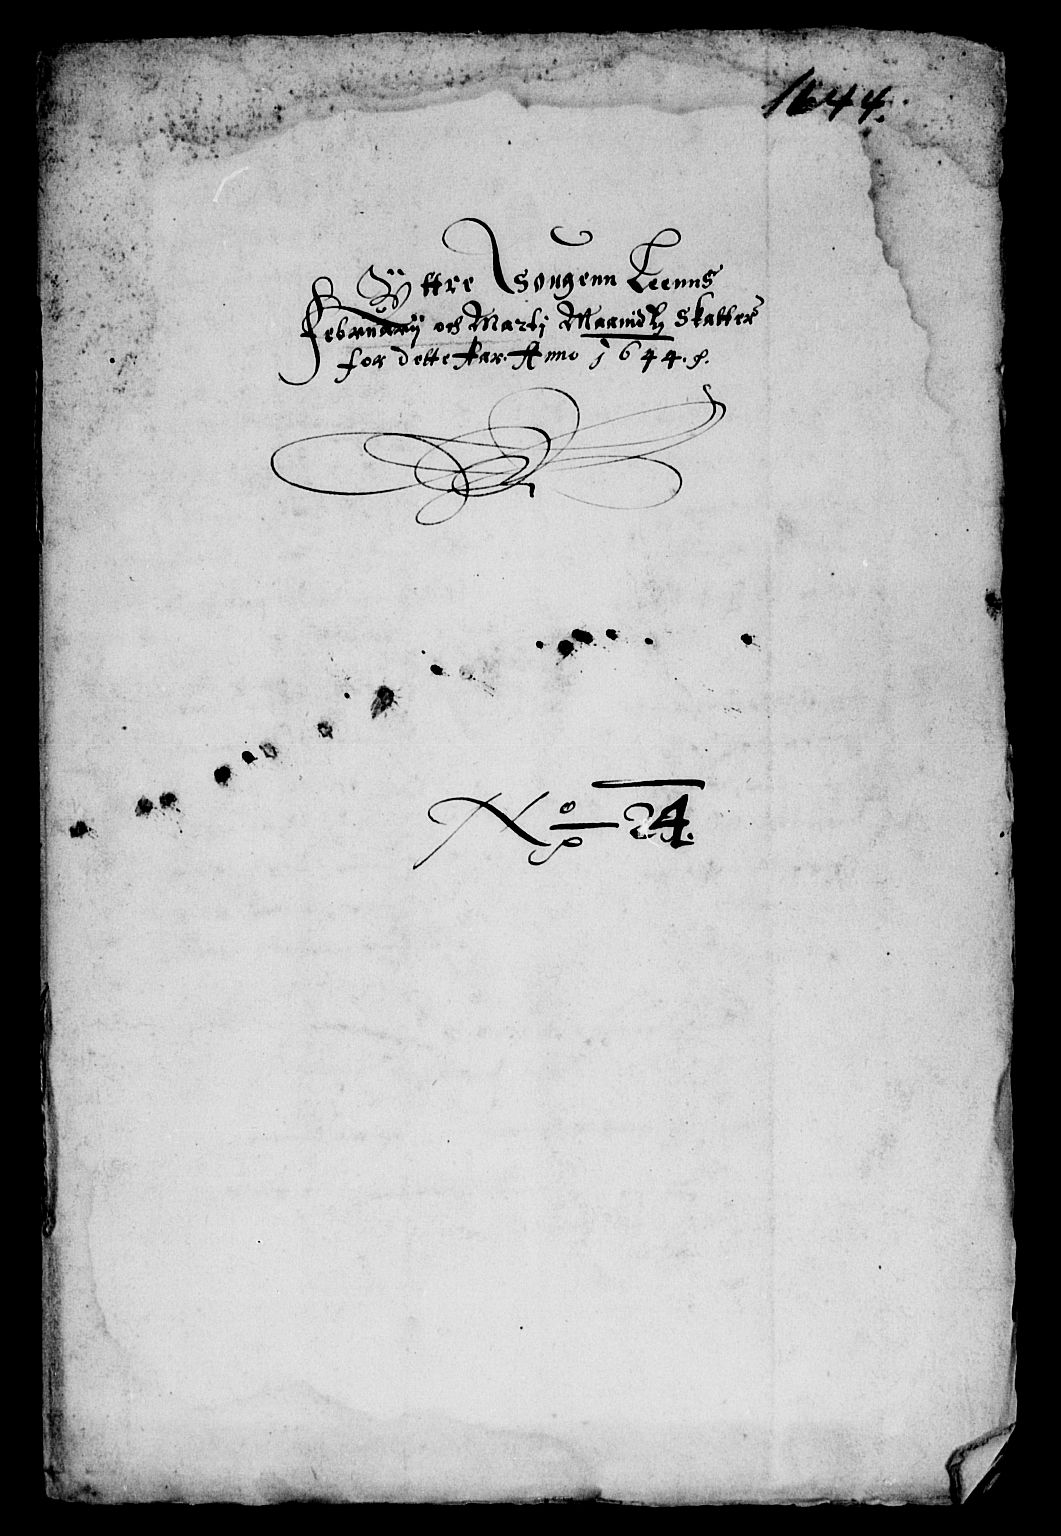 1644.
Yttre Sougenn Leenns
Februarij och Martj Maanidtz Skatter
for dette Aar. Anno 1644.
No 24.